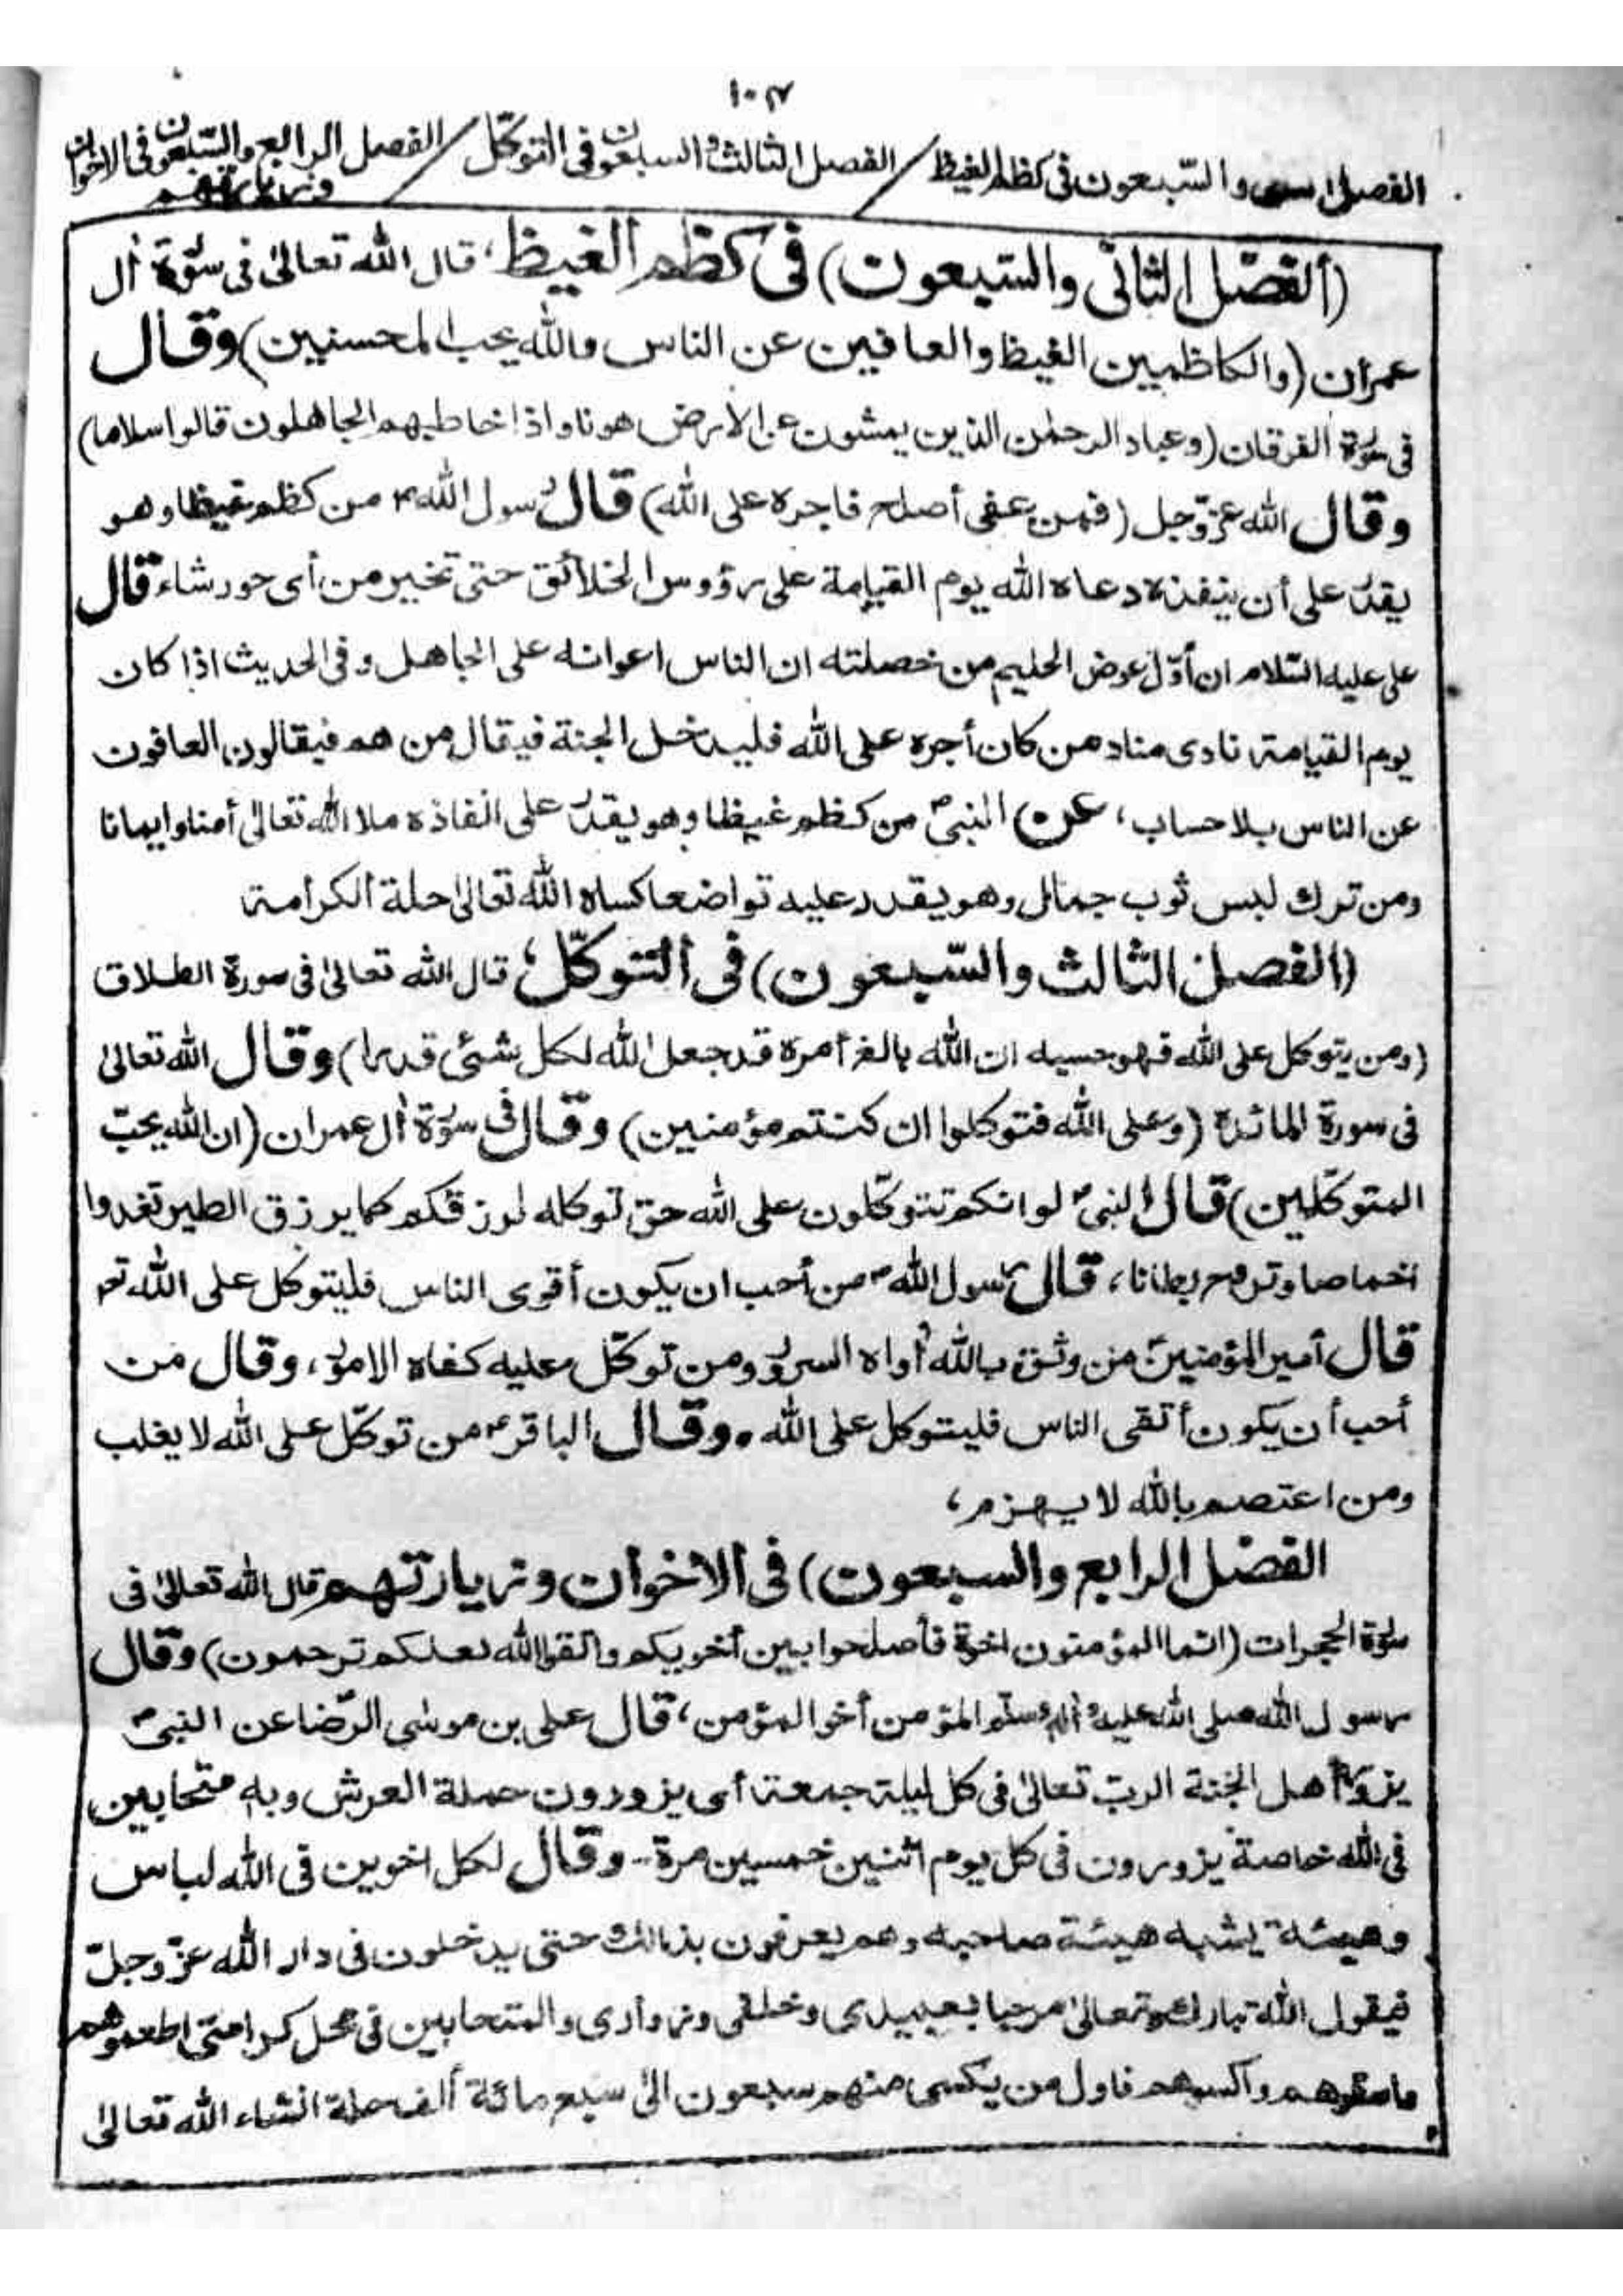 ١٠٧
الفصل والسّبعون فى كظم الغيظ / الفصل الثالث والسبعون فى التوكّل / الفصل الرابع والسّبعون فى الاخوان
وزيارتهم
(ألفصل الثانى والسّبعون) فى كظم ألغيظ، قال الله تعالىٰ فى سورة أٰل
عمران (والكاظمين الغيظ والعافين عن الناس والله يحب المحسنين) وقال
فى سورة الفرقان (وعباد الرحمٰن الذين يمشون عن الارض هونا واذا خاطبهم الجاهلون قالوا سلاما)
وقال الله عزّ وجل (فمن عفى أصلح فاجره على الله) قال رسول الله ص من كظم غيظا وهو
يقدر على أن ينفذه دعاه الله يوم القيامة على رؤوس الخلائق حتى تخير من أى حور شاء قال
على عليه السّلام ان أوّل عوض الحليم من خصلته ان الناس اعوانه على الجاهل وفى الحديث اذا كان
يوم القيامة نادى مناد من كان أجره على الله فليدخل الجنة فيقال من هم فيقالون العافون
عن الناس بلا حساب، عن) النبىّ ص من كظم غيظا وهو يقدر على انفاذه ملا الله تعالىٰ أمنا وايمانا
ومن ترك لبس ثوب جمال وهو يقدر عليه تواضعا كساه الله تعالىٰ حلة ألكرامة
(الفصل الثالث والسّبعون) فى ألتوكّل؛ قال الله تعالىٰ فى سورة الطلاق
(ومن يتوكل على الله فهو حسبه ان الله بالغ أمره قد جعل الله لكل شئى قدرا) وقال الله تعالىٰ
فى سورة المائدة (وعلى الله فتوكلوا ان كنتم مؤمنين) وقال فى سورة أٰل عمران (ان الله يحبّ
المتوكّلين) قال النبى ص لو انكم تتوكّلون على الله حق توكله لرزقكم كما يرزق الطير تغدوا
اخماصا وتروح بطانا، قال رسول الله ص من أحب ان يكون أقوى الناس فليتوكل على الله تعـ
قال أمير المؤمنين ع من وثق بالله أراه السرور ومن توكّل عليه كفاه الامور، وقال من
أحب أن يكون أتقى الناس فليتوكل على الله. وقال الباقر ع من توكّل على الله لا يغلب
ومن اعتصم بالله لا يهزم،
الفصل الرابع والسبعون) فى ألاخوان وزيارتهم قال الله تعالىٰ فى
سورة الحجرات (انما المؤمنون اخوة فأصلحوا بين أخويكم واتقوا الله لعلكم ترحمون) وقال
رسول الله صلى الله عليه وأله وسلم المؤمن أخوا لمؤمن، قال على بن موسٰى الرّضا عن النبىّ ص
يزور أهل الجنة الربّ تعالىٰ فى كل ليلة جمعة أى يزورون حملة العرش وبه متحابين
فى الله خاصة يزورون فى كل يوم اثنين خمسين مرة- وقال لكل اخوين فى الله لباس
وهيئة يشبه هيئة صاحبه وهم يعرفون بذالك حتى يدخلون فى دار الله عزّ وجلّ
فيقول الله تبارك وتعالىٰ مرحبا بعبيدى وخلقى وزوارى والمتحابين فى محل كرامتى اطعموهم
واسقوهم واكسوهم فاول من يكسى منهم سبعون الىٰ سبع مائة ألف حلة انشاء الله تعالىٰ